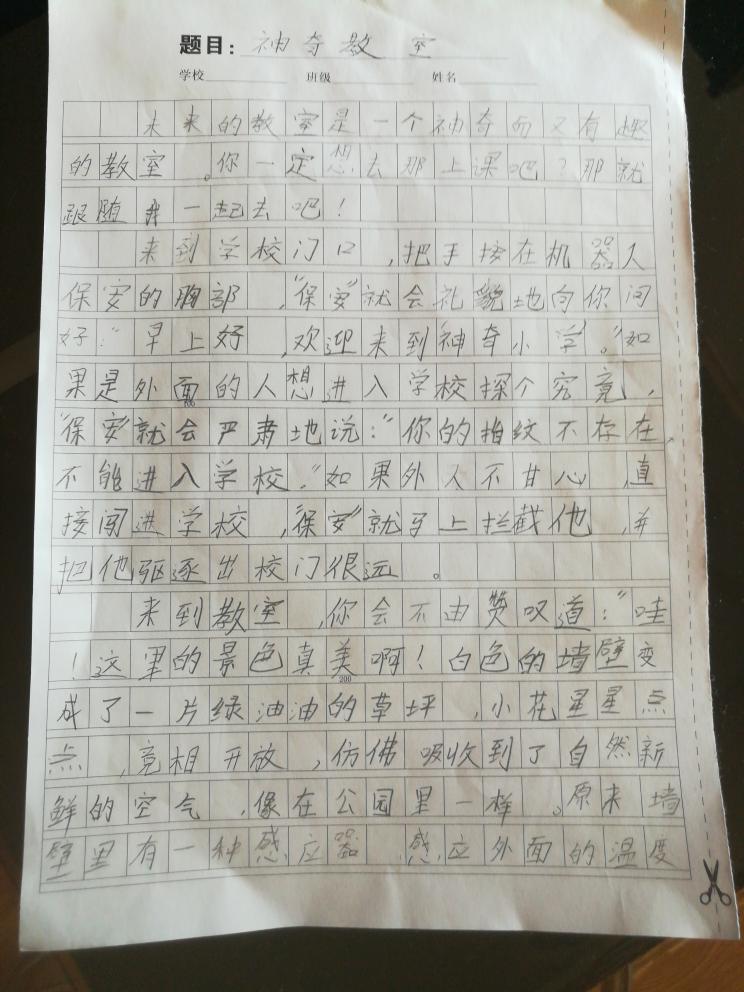 题目：神奇教室
学校 班级 姓名
未来的教室是一个神奇而又有趣
的教室。你一定想去那上课吧？那就
跟随我一起去吧！
来到学校门口，把手按在机器人
保安的胸部，“保安”就会礼貌地向你问
好：“早上好，欢迎来到神奇小学。”如
果是外面的人想进入学校探个究竟，
100
“保安”就会严肃地说：“你的指纹不存在
不能进入学校。”如果外人不甘心，直
接闯进学校，“保安”就马上拦截他，并
把他驱逐出校门很远。
来到教室，你会不由赞叹道：“哇
！这里的景色真美啊！白色的墙壁变
200
成了一片绿油油的草坪，小花星星点
点，竞相开放，仿佛吸收到了自然新
鲜的空气，像在公园里一样。原来墙
壁里有一种感应器，感应外面的温度